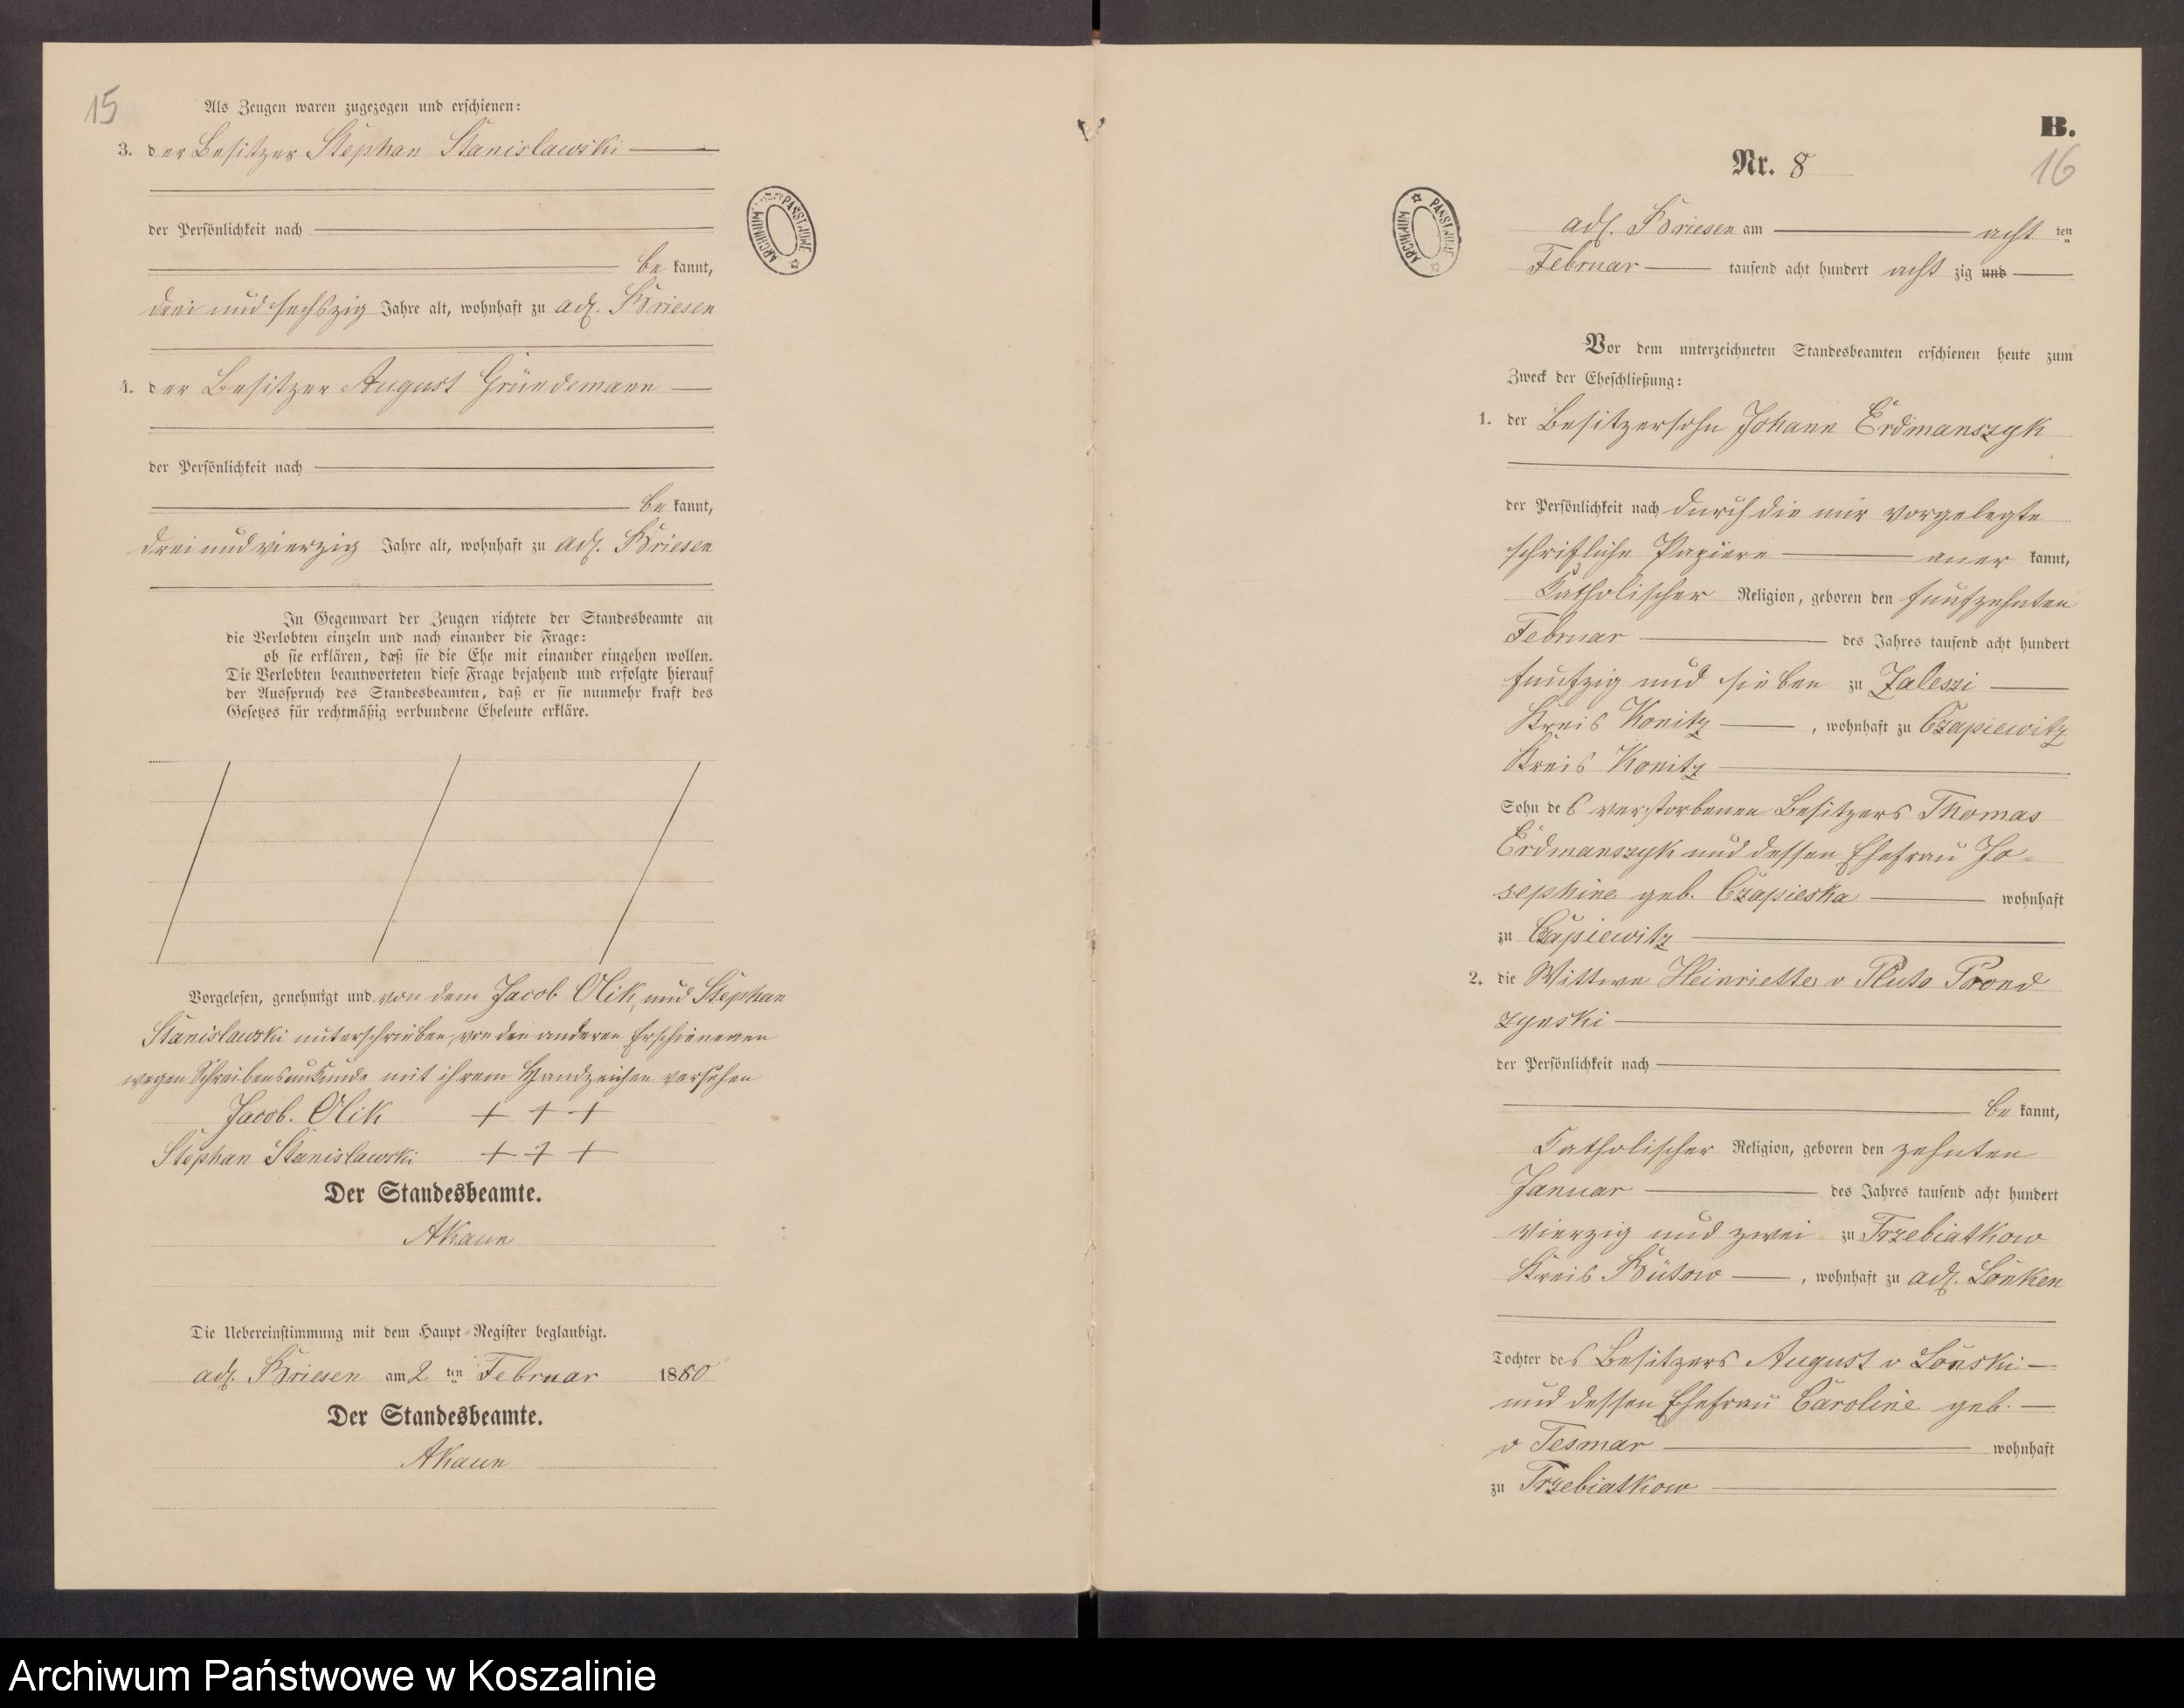 15
Als Zeugen waren zugezogen und erschienen:
3. der Besitzer Stephan Stanislawski
der Persönlichkeit nach
be kannt,
drei und sechszig Jahre alt, wohnhaft zu adl. Briesen
4. der Besitzer August Gründemann
der Persönlichkeit nach
be kannt,
drei und vierzig Jahre alt, wohnhaft zu adl. Briesen
In Gegenwart der Zeugen richtete der Standesbeamte an
die Verlobten einzeln und nach einander die Frage:
ob sie erklären, daß sie die Ehe mit einander eingehen wollen.
Die Verlobten beantworteten diese Frage bejahend und erfolgte hierauf
der Ausspruch des Standesbeamten, daß er sie nunmehr kraft des
Gesetzes für rechtmäßig verbundene Eheleute erkläre.
Vorgelesen, genehmigt und von dem Jacob Olik, und Stephan
Stanislawski unterschrieben, von den anderen Erschienenen
wegen Schreibensunkunde mit ihrem Handzeichen versehen
Jacob. Olik + + +
Stephan Stanislawski + + +
Der Standesbeamte.
Die Uebereinstimmung mit dem Haupt-Register beglaubigt.
adl. Briesen am 2 ten Februar 1880
Der Standesbeamte.
ARCHIWUM PAŃSTWOWE
B.
16
Nr. 8
ARCHIWUM PAŃSTWOWE
adl. Briesen am acht ten
Februar tausend acht hundert acht zig und
Vor dem unterzeichneten Standesbeamten erschienen heute zum
Zweck der Eheschließung:
1. der Besitzersohn Johann Erdmanszyk
der Persönlichkeit nach durch die mir vorgelegte
schriftliche Papiere aner kannt,
Katholischer Religion, geboren den funfzehnten
Februar des Jahres tausend acht hundert
funfzig und sieben zu Zaleszi
Kreis Konitz, wohnhaft zu Czapiewitz
Kreis Konitz
Sohn des verstorbenen Besitzers Thomas
Erdmanszyk und dessen Ehefrau Jo-
sephine geb. Czapieska wohnhaft
zu Czapiewitz
2. die Wittwe Heinriette v Pluto Prond
zynski
der Persönlichkeit nach
be kannt,
Katholischer Religion, geboren den zehnten
Januar des Jahres tausend acht hundert
vierzig und zwei zu Trzebiatkow
Kreis Bütow, wohnhaft zu adl. Lonken
Tochter des Besitzers August v Lonski
und dessen Ehefrau Caroline geb.
v Tesmar wohnhaft
zu Trzebiatkow
Archiwum Państwowe w Koszalinie